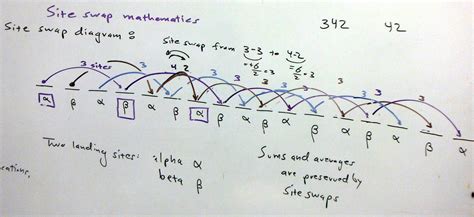 Site swap mathematics
342 42
Site swap diagram:
Site swap from 3-3 to 4-2
6/2=3 =6/2=3
3 sites 3 4 2 3 3 3 3 3 3 3
α β α β α β α β α β β α β α
Two landing sites: alpha α
beta β
Sums and averages
are preserved by
site swaps